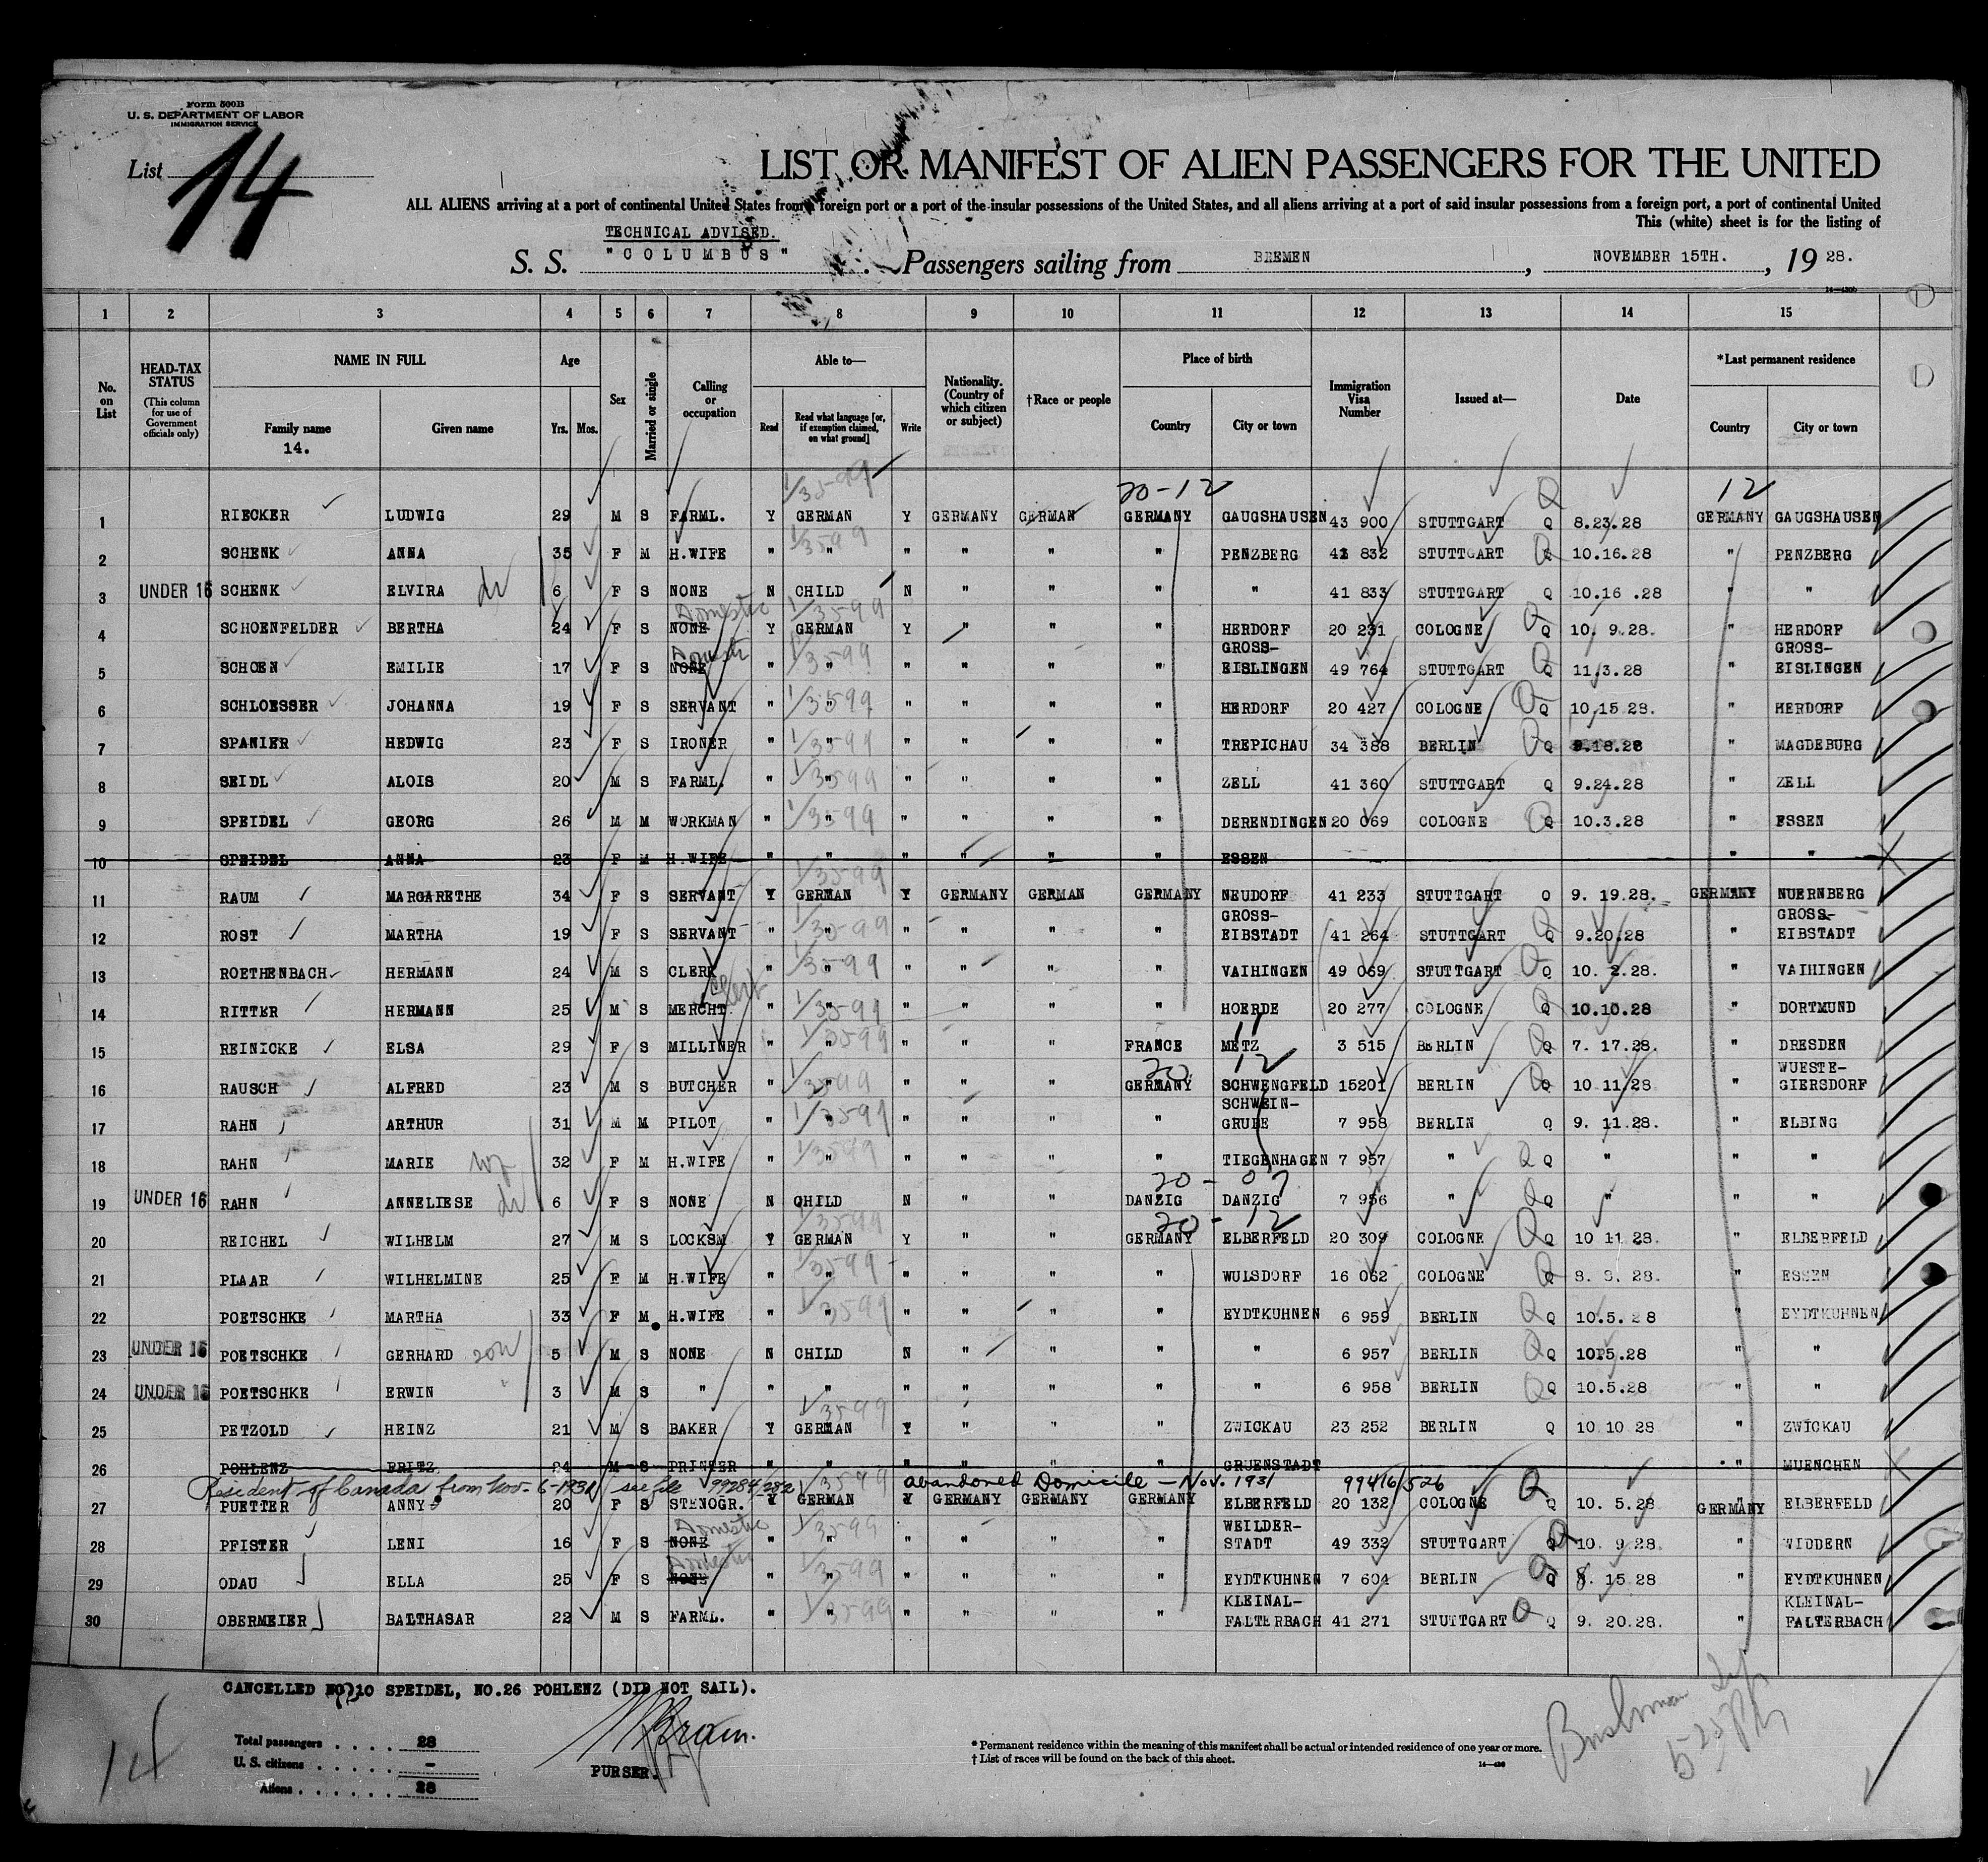 Form 500B
U. S. DEPARTMENT OF LABOR
IMMIGRATION SERVICE
List 14
LIST OR MANIFEST OF ALIEN PASSENGERS FOR THE UNITED
ALL ALIENS arriving at a port of continental United States from a foreign port or a port of the insular possessions of the United States, and all aliens arriving at a port of said insular possessions from a foreign port, a port of continental United
This (white) sheet is for the listing of
TECHNICAL ADVISED.
S. S. "COLUMBUS" Passengers sailing from BREMEN, NOVEMBER 15TH., 19 28.
1 2 3 4 5 6 7 8 9 10 11 12 13 14 15
No. on List
HEAD-TAX STATUS (This column for use of Government officials only)
NAME IN FULL Family name Given name
14.
Age Yrs. Mos.
Sex
Married or single
Calling or occupation
Able to— Read Read what language [or, if exemption claimed, on what ground] Write
Nationality. (Country of which citizen or subject)
†Race or people
Place of birth Country City or town
Immigration Visa Number
Issued at—
Date
*Last permanent residence Country City or town
1/3599 20-12 12
1 RIECKER LUDWIG 29 M S FARML. Y GERMAN Y GERMANY GERMAN GERMANY GAUGSHAUSEN 43 900 STUTTGART Q 8.23.28 GERMANY GAUGSHAUSEN
2 SCHENK ANNA 35 F M H.WIFE " " " " " " PENZBERG 41 832 STUTTGART Q 10.16.28 " PENZBERG
3 UNDER 16 SCHENK ELVIRA 6 F S NONE N CHILD N " " " " 41 833 STUTTGART Q 10.16 .28 " "
4 SCHOENFELDER BERTHA 24 F S NONE Domestic Y GERMAN Y " " " HERDORF 20 231 COLOGNE Q 10. 9.28. " HERDORF
5 SCHOEN EMILIE 17 F S NONE Domestic " " " " " " GROSS-EISLINGEN 49 764 STUTTGART Q 11.3.28 " GROSS-EISLINGEN
6 SCHLOESSER JOHANNA 19 F S SERVANT " " " " " " HERDORF 20 427 COLOGNE Q 10.15.28. " HERDORF
7 SPANIER HEDWIG 23 F S IRONER " " " " " " TREPICHAU 34 388 BERLIN Q 9.18.28 " MAGDEBURG
8 SEIDL ALOIS 20 M S FARML. " " " " " " ZELL 41 360 STUTTGART Q 9.24.28 " ZELL
9 SPEIDEL GEORG 26 M M WORKMAN " " " " " " DERENDINGEN 20 069 COLOGNE Q 10.3.28 " ESSEN
10 SPEIDEL ANNA 23 F M H.WIFE " " " " " " ESSEN " "
11 RAUM MARGARETHE 34 F S SERVANT Y GERMAN Y GERMANY GERMAN GERMANY NEUDORF 41 233 STUTTGART Q 9. 19.28. GERMANY NUERNBERG
12 ROST MARTHA 19 F S SERVANT " " " " " " GROSS-EIBSTADT 41 264 STUTTGART Q 9.20.28 " GROSS-EIBSTADT
13 ROETHENBACH HERMANN 24 M S CLERK " " " " " " VAIHINGEN 49 069 STUTTGART Q 10. 2.28. " VAIHINGEN
14 RITTER HERMANN 25 M S MERCHT. Clerk " " " " " " HOERDE 20 277 COLOGNE Q 10.10.28 " DORTMUND
15 REINICKE ELSA 29 F S MILLINER " " " " " FRANCE METZ 11 3 515 BERLIN Q 7. 17.28. " DRESDEN
20 12
16 RAUSCH ALFRED 23 M S BUTCHER " " " " " GERMANY SCHWENGFELD 15201 BERLIN Q 10 11.28 " WUESTE-GIERSDORF
17 RAHN ARTHUR 31 M M PILOT " " " " " " SCHWEIN-GRUBE 7 958 BERLIN Q 9. 11.28. " ELBING
18 RAHN MARIE 32 F M H.WIFE " " " " " " TIEGENHAGEN 7 957 " Q " " "
20-07
19 UNDER 16 RAHN ANNELIESE 6 F S NONE N CHILD N " " DANZIG DANZIG 7 956 " Q " " "
20-12
20 REICHEL WILHELM 27 M S LOCKSM Y GERMAN Y " " GERMANY ELBERFELD 20 309 COLOGNE Q 10 11 28. " ELBERFELD
21 PLAAR WILHELMINE 25 F M H.WIFE " " " " " " WULSDORF 16 062 COLOGNE Q 8. 8. 28. " ESSEN
22 POETSCHKE MARTHA 33 F M H.WIFE " " " " " " EYDTKUHNEN 6 959 BERLIN Q 10.5.28 " EYDTKUHNEN
23 UNDER 16 POETSCHKE GERHARD son 5 M S NONE N CHILD N " " " " 6 957 BERLIN Q 10.5.28 " "
24 UNDER 16 POETSCHKE ERWIN 3 M S " " " " " " " " 6 958 BERLIN Q 10.5.28 " "
25 PETZOLD HEINZ 21 M S BAKER Y GERMAN Y " " " ZWICKAU 23 252 BERLIN Q 10 10 28 " ZWICKAU
26 POHLENZ FRITZ 24 M S PRINTER " " " " " " GRUENSTADT " MUENCHEN
Resident of Canada from Nov- 6-1931 see file 99284/282 abandoned Domicile - Nov. 1931 99416/526
27 PUETTER ANNY 20 F S STENOGR. Y GERMAN Y GERMANY GERMANY GERMANY ELBERFELD 20 132 COLOGNE Q 10. 5.28 GERMANY ELBERFELD
28 PFISTER LENI 16 F S NONE Domestic " " " " " " WEILDER-STADT 49 332 STUTTGART Q 10. 9 28. " WIDDERN
29 ODAU ELLA 25 F S NONE Domestic " " " " " " EYDTKUHNEN 7 604 BERLIN Q 8. 15 28 " EYDTKUHNEN
30 OBERMEIER BALTHASAR 22 M S FARML. " " " " " " KLEINAL-FALTERBACH 41 271 STUTTGART Q 9. 20.28. " KLEINAL-FALTERBACH
CANCELLED NO. 10 SPEIDEL, NO.26 POHLENZ (DID NOT SAIL).
14
Total passengers . . . . 28
U. S. citizens . . . . . -
Aliens . . . . . . 28
PURSER.
* Permanent residence within the meaning of this manifest shall be actual or intended residence of one year or more.
† List of races will be found on the back of this sheet.
Bushman